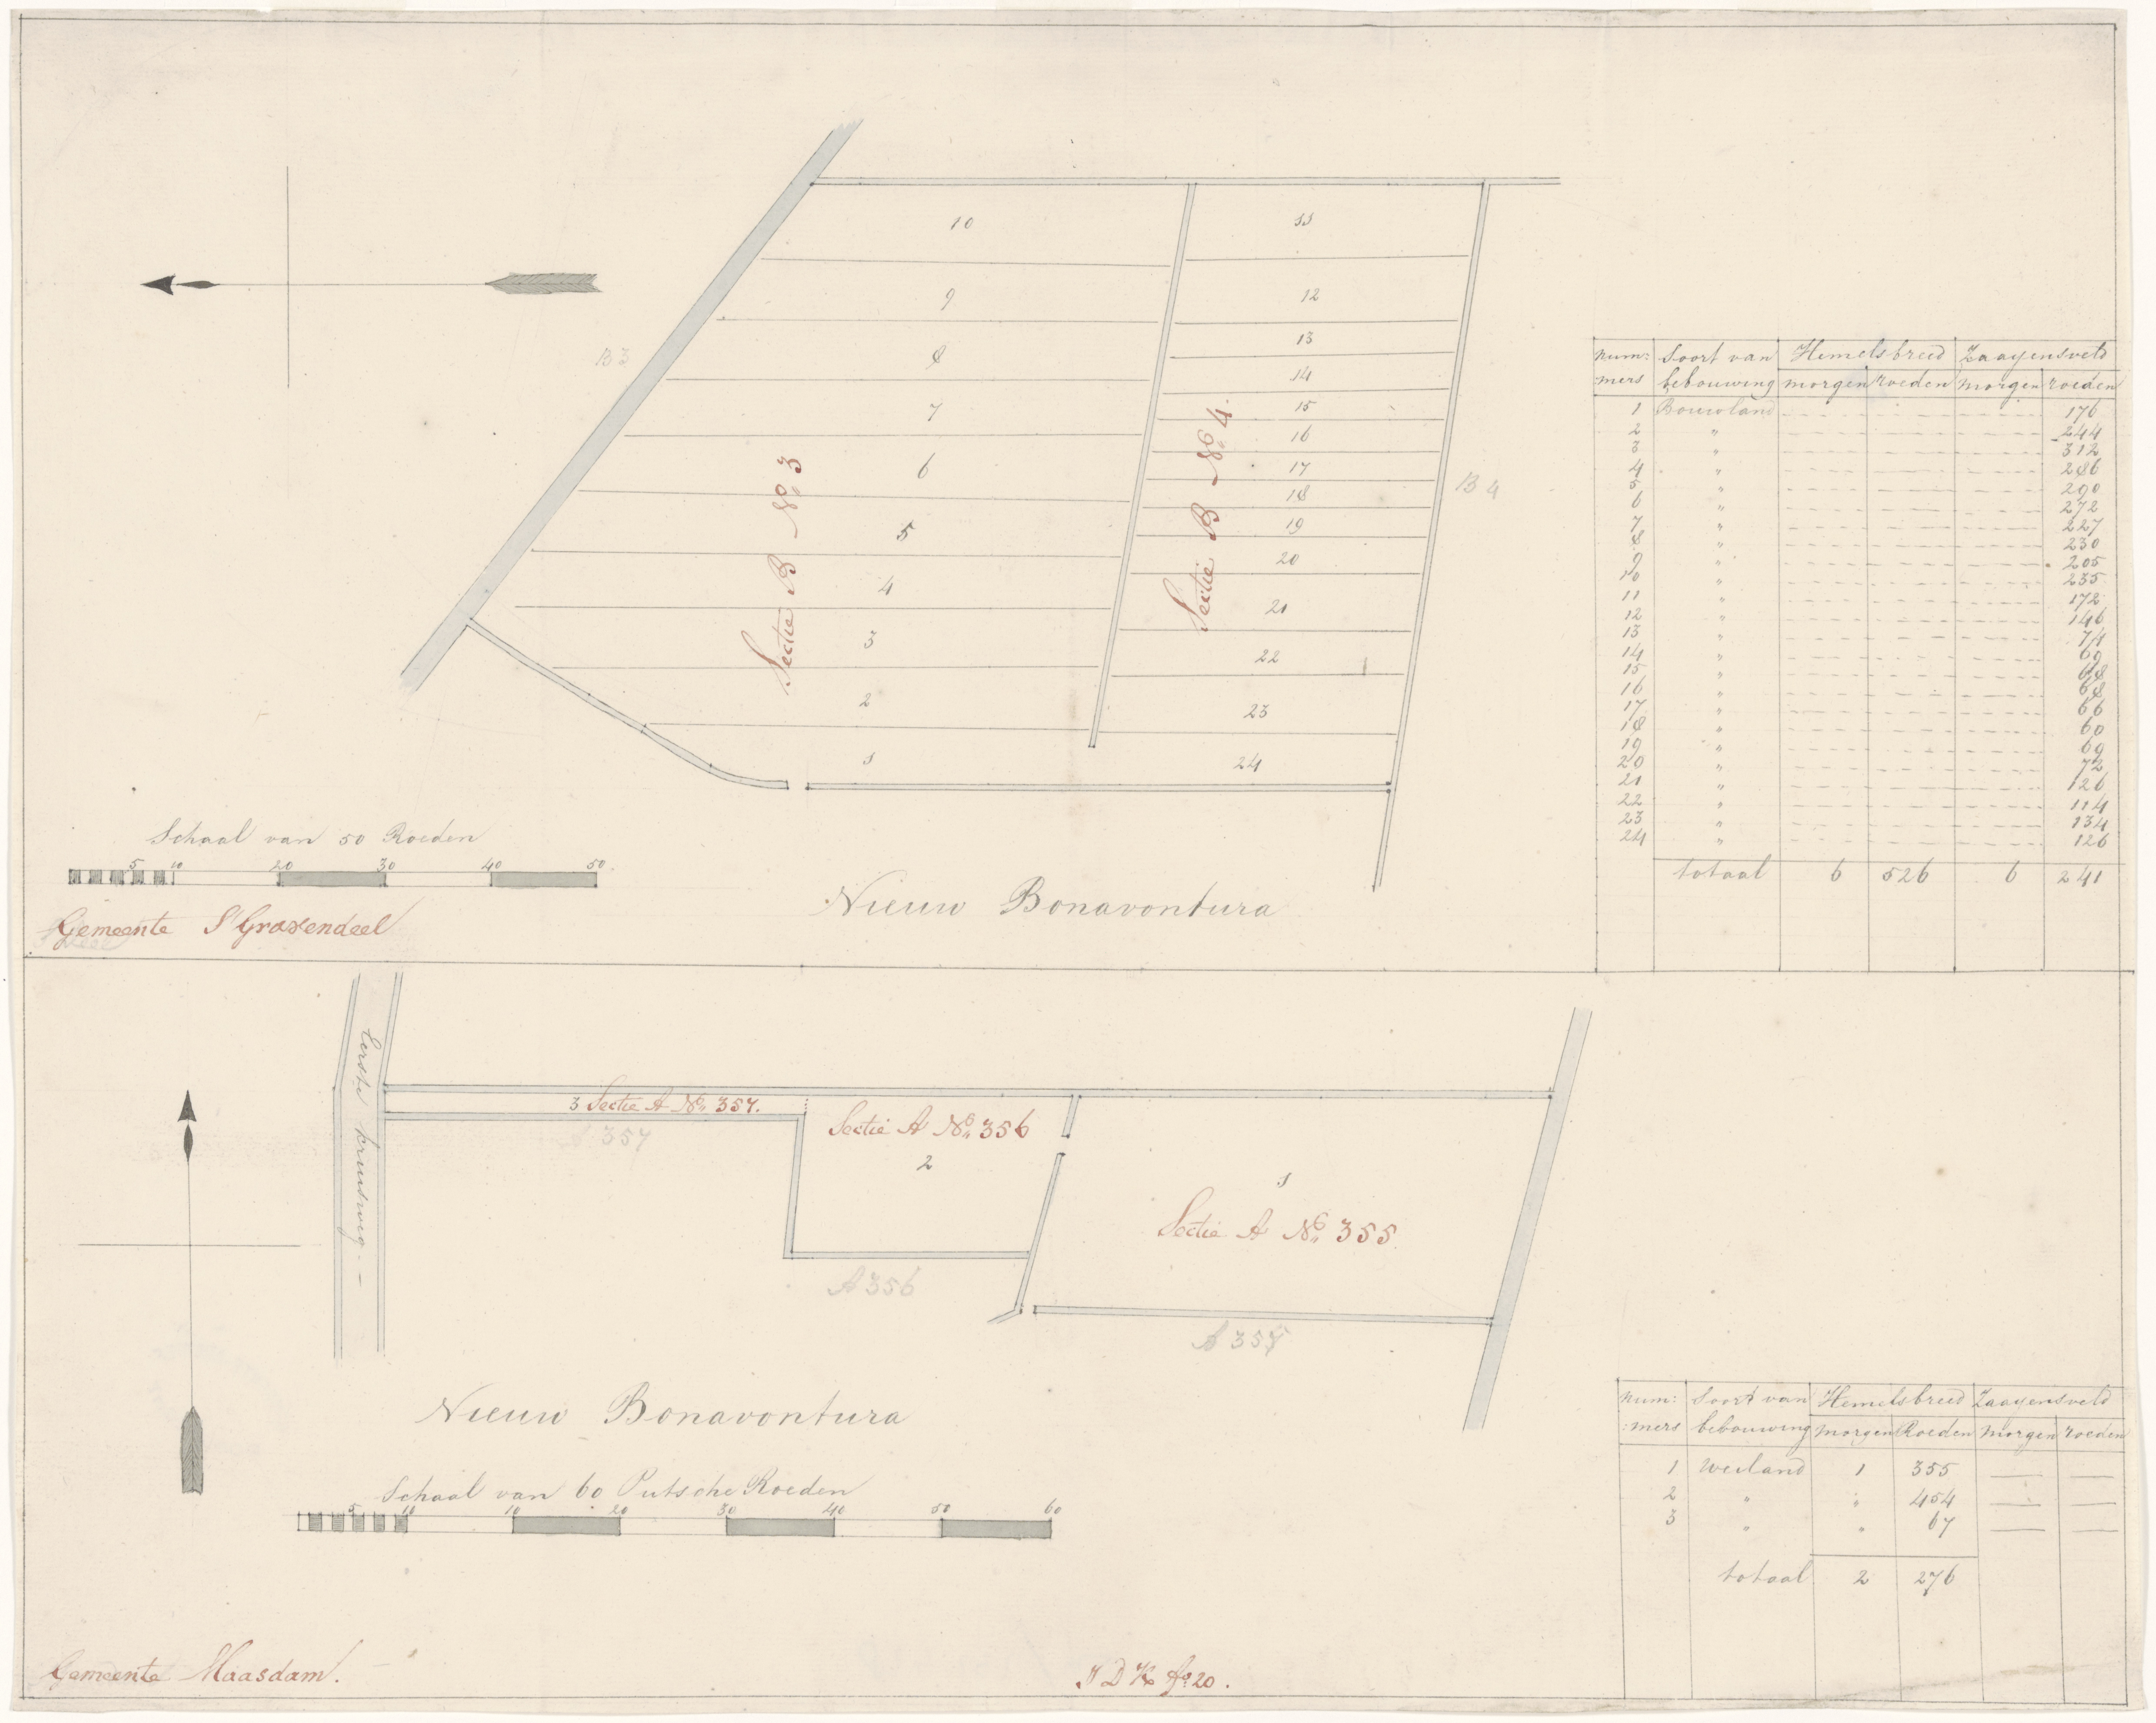 10
11
9
12
B 3
8
13
7
14
15
6
16
17
5
18
19
4
20
3
21
2
22
1
23
24
Sectie B No. 3
Sectie B No. 4.
B 4
Schaal van 50 Roeden
5 10 20 30 40 50
Gemeente S'Gravendeel
Nieuw Bonavontura
num: Soort van Hemelsbreed Zaayensveld
mers bebouwing morgen roeden morgen roeden
1 Bouwland 176
2 " 244
3 " 312
4 " 286
5 " 290
6 " 272
7 " 227
8 " 230
9 " 205
10 " 235
11 " 172
12 " 146
13 " 74
14 " 69
15 " 68
16 " 68
17 " 66
18 " 60
19 " 69
20 " 72
21 " 126
22 " 114
23 " 134
24 " 126
totaal 6 526 6 241
Eerste kruisweg. –
3 Sectie A No. 357.
A 357
Sectie A No. 356
2
A 356
1
Sectie A No. 355
Nieuw Bonavontura
Schaal van 60 Putsche Roeden
5 10 10 20 30 40 50 60
Gemeente Maasdam.
num: Soort van Hemelsbreed Zaayensveld
:mers bebouwing morgen Roeden morgen roeden
1 Weiland 1 355
2 " " 454
3 " " 67
totaal 2 276